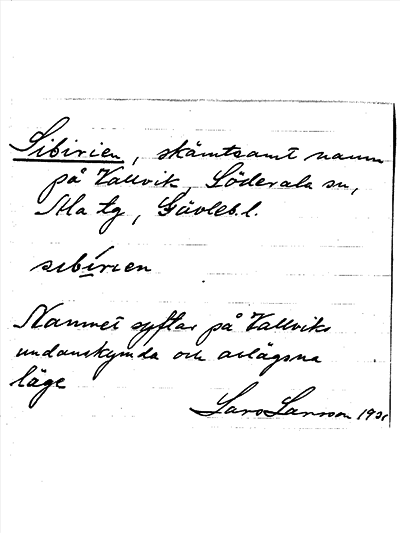 Sibirien, skämtsamt namn
på Vallvik, Söderala sn,
Ala tg, Gävleb. l.
sibírien
Namnet syftar på Vallviks
undanskymda och avlägsna
läge
Lars Larsson